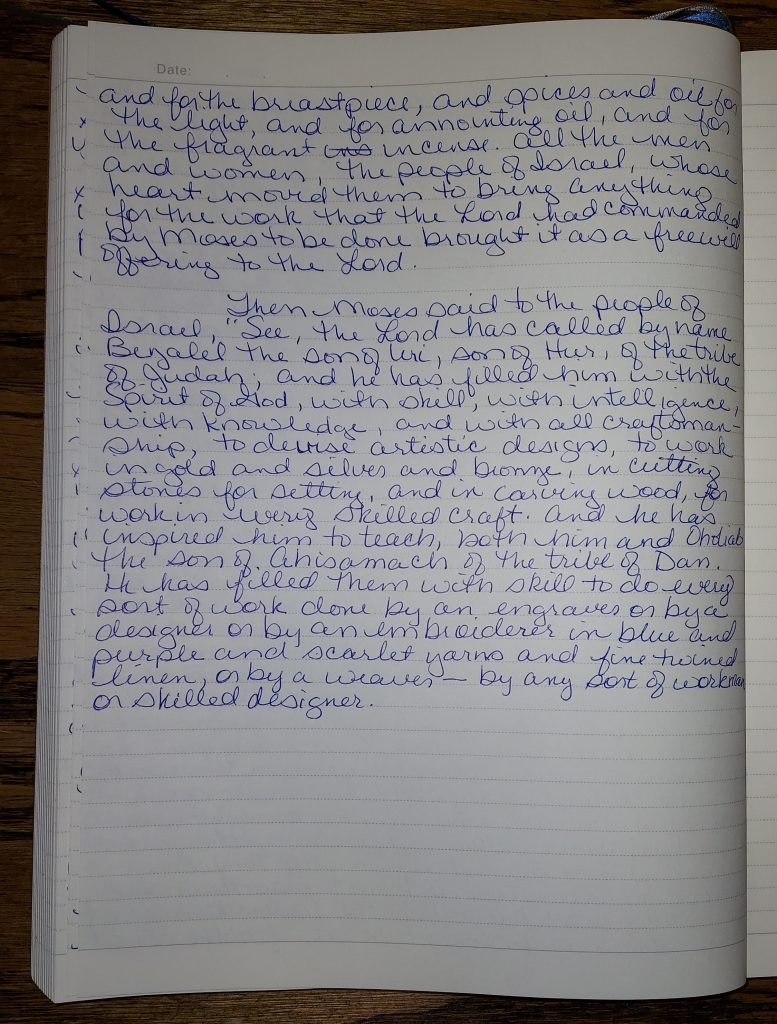 Date:
and for the breastpiece, and spices and oil for
the light, and for annointing oil, and for
the fragrant ins incense. All the men
and women, the people of Israel, whose
heart moved them to bring anything
for the work that the Lord had commanded
by Moses to be done brought it as a freewill
offering to the Lord.
Then Moses said to the people of
Israel, "See, the Lord has called by name
Bezalel the son of Uri, son of Hur, of the tribe
of Judah; and he has filled him with the
Spirit of God, with skill, with intelligence,
with knowledge, and with all craftsman-
ship, to devise artistic designs, to work
in gold and silver and bronze, in cutting
stones for setting, and in carving wood, for
work in every skilled craft. And he has
inspired him to teach, both him and Oholiab
the son of Ahisamach of the tribe of Dan.
He has filled them with skill to do every
sort of work done by an engraver or by a
designer or by an embroiderer in blue and
purple and scarlet yarns and fine twined
linen, or by a weaver – by any sort of workman
or skilled designer.